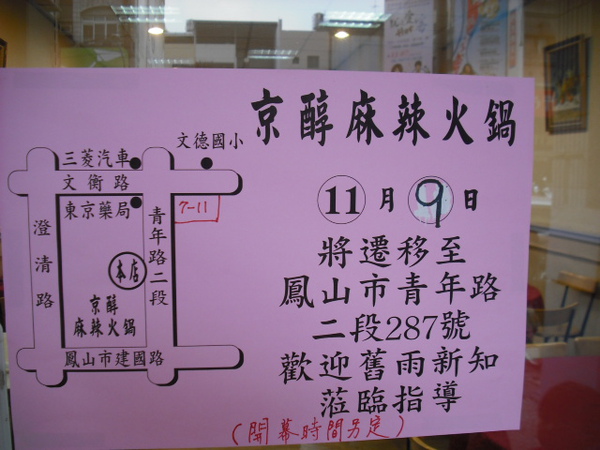 京醇麻辣火鍋
11月9日
將遷移至
鳳山市青年路
二段287號
歡迎舊雨新知
蒞臨指導
(開幕時間另定)
文德國小
三菱汽車
文衡路
東京藥局
7-11
澄清路
青年路二段
本店
京醇
麻辣火鍋
鳳山市建國路